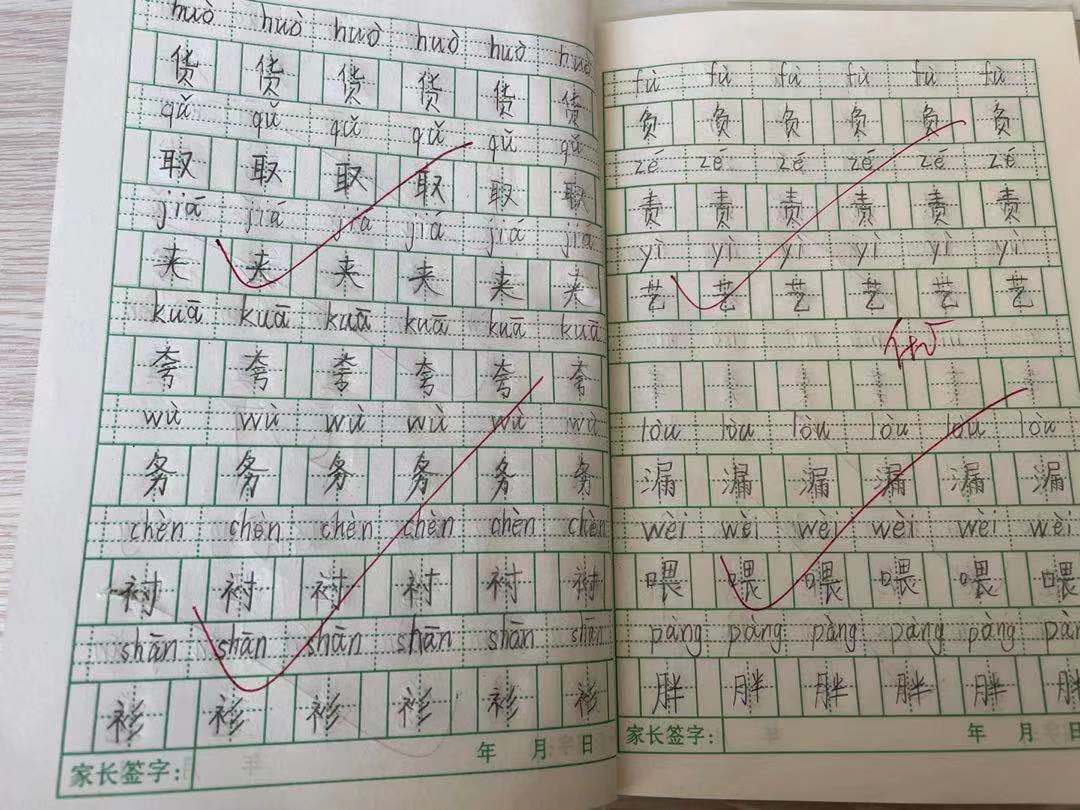 huò huò huò huò huò huò
货 货 货 货 货 货
qǔ qǔ qǔ qǔ qǔ qǔ
取 取 取 取 取 取
jiā jiā jiā jiā jiā jiā
夹 夹 夹 夹 夹 夹
kuā kuā kuā kuā kuā kuā
夸 夸 夸 夸 夸 夸
wù wù wù wù wù wù
务 务 务 务 务 务
chèn chèn chèn chèn chèn chèn
衬 衬 衬 衬 衬 衬
shān shān shān shān shān shān
衫 衫 衫 衫 衫 衫
年 月 日
家长签字:
fù fù fù fù fù fù
负 负 负 负 负 负
zé zé zé zé zé zé
责 责 责 责 责 责
yì yì yì yì yì yì
艺 艺 艺 艺 艺 艺
lòu lòu lòu lòu lòu lòu
漏 漏 漏 漏 漏 漏
wèi wèi wèi wèi wèi wèi
喂 喂 喂 喂 喂 喂
pàng pàng pàng pàng pàng pàn
胖 胖 胖 胖 胖 胖
家长签字: 年 月 日